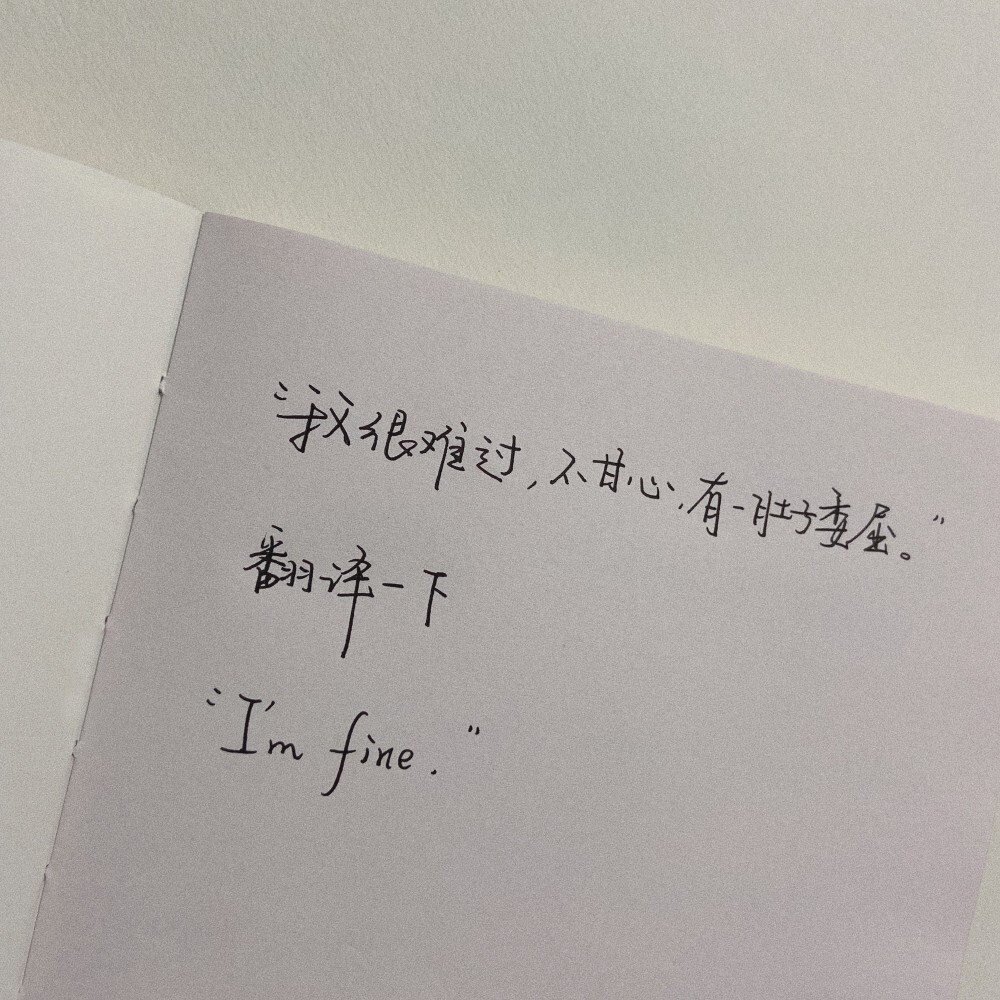 “我很难过,不甘心,有一肚子委屈。”
翻译一下
“I'm fine.”